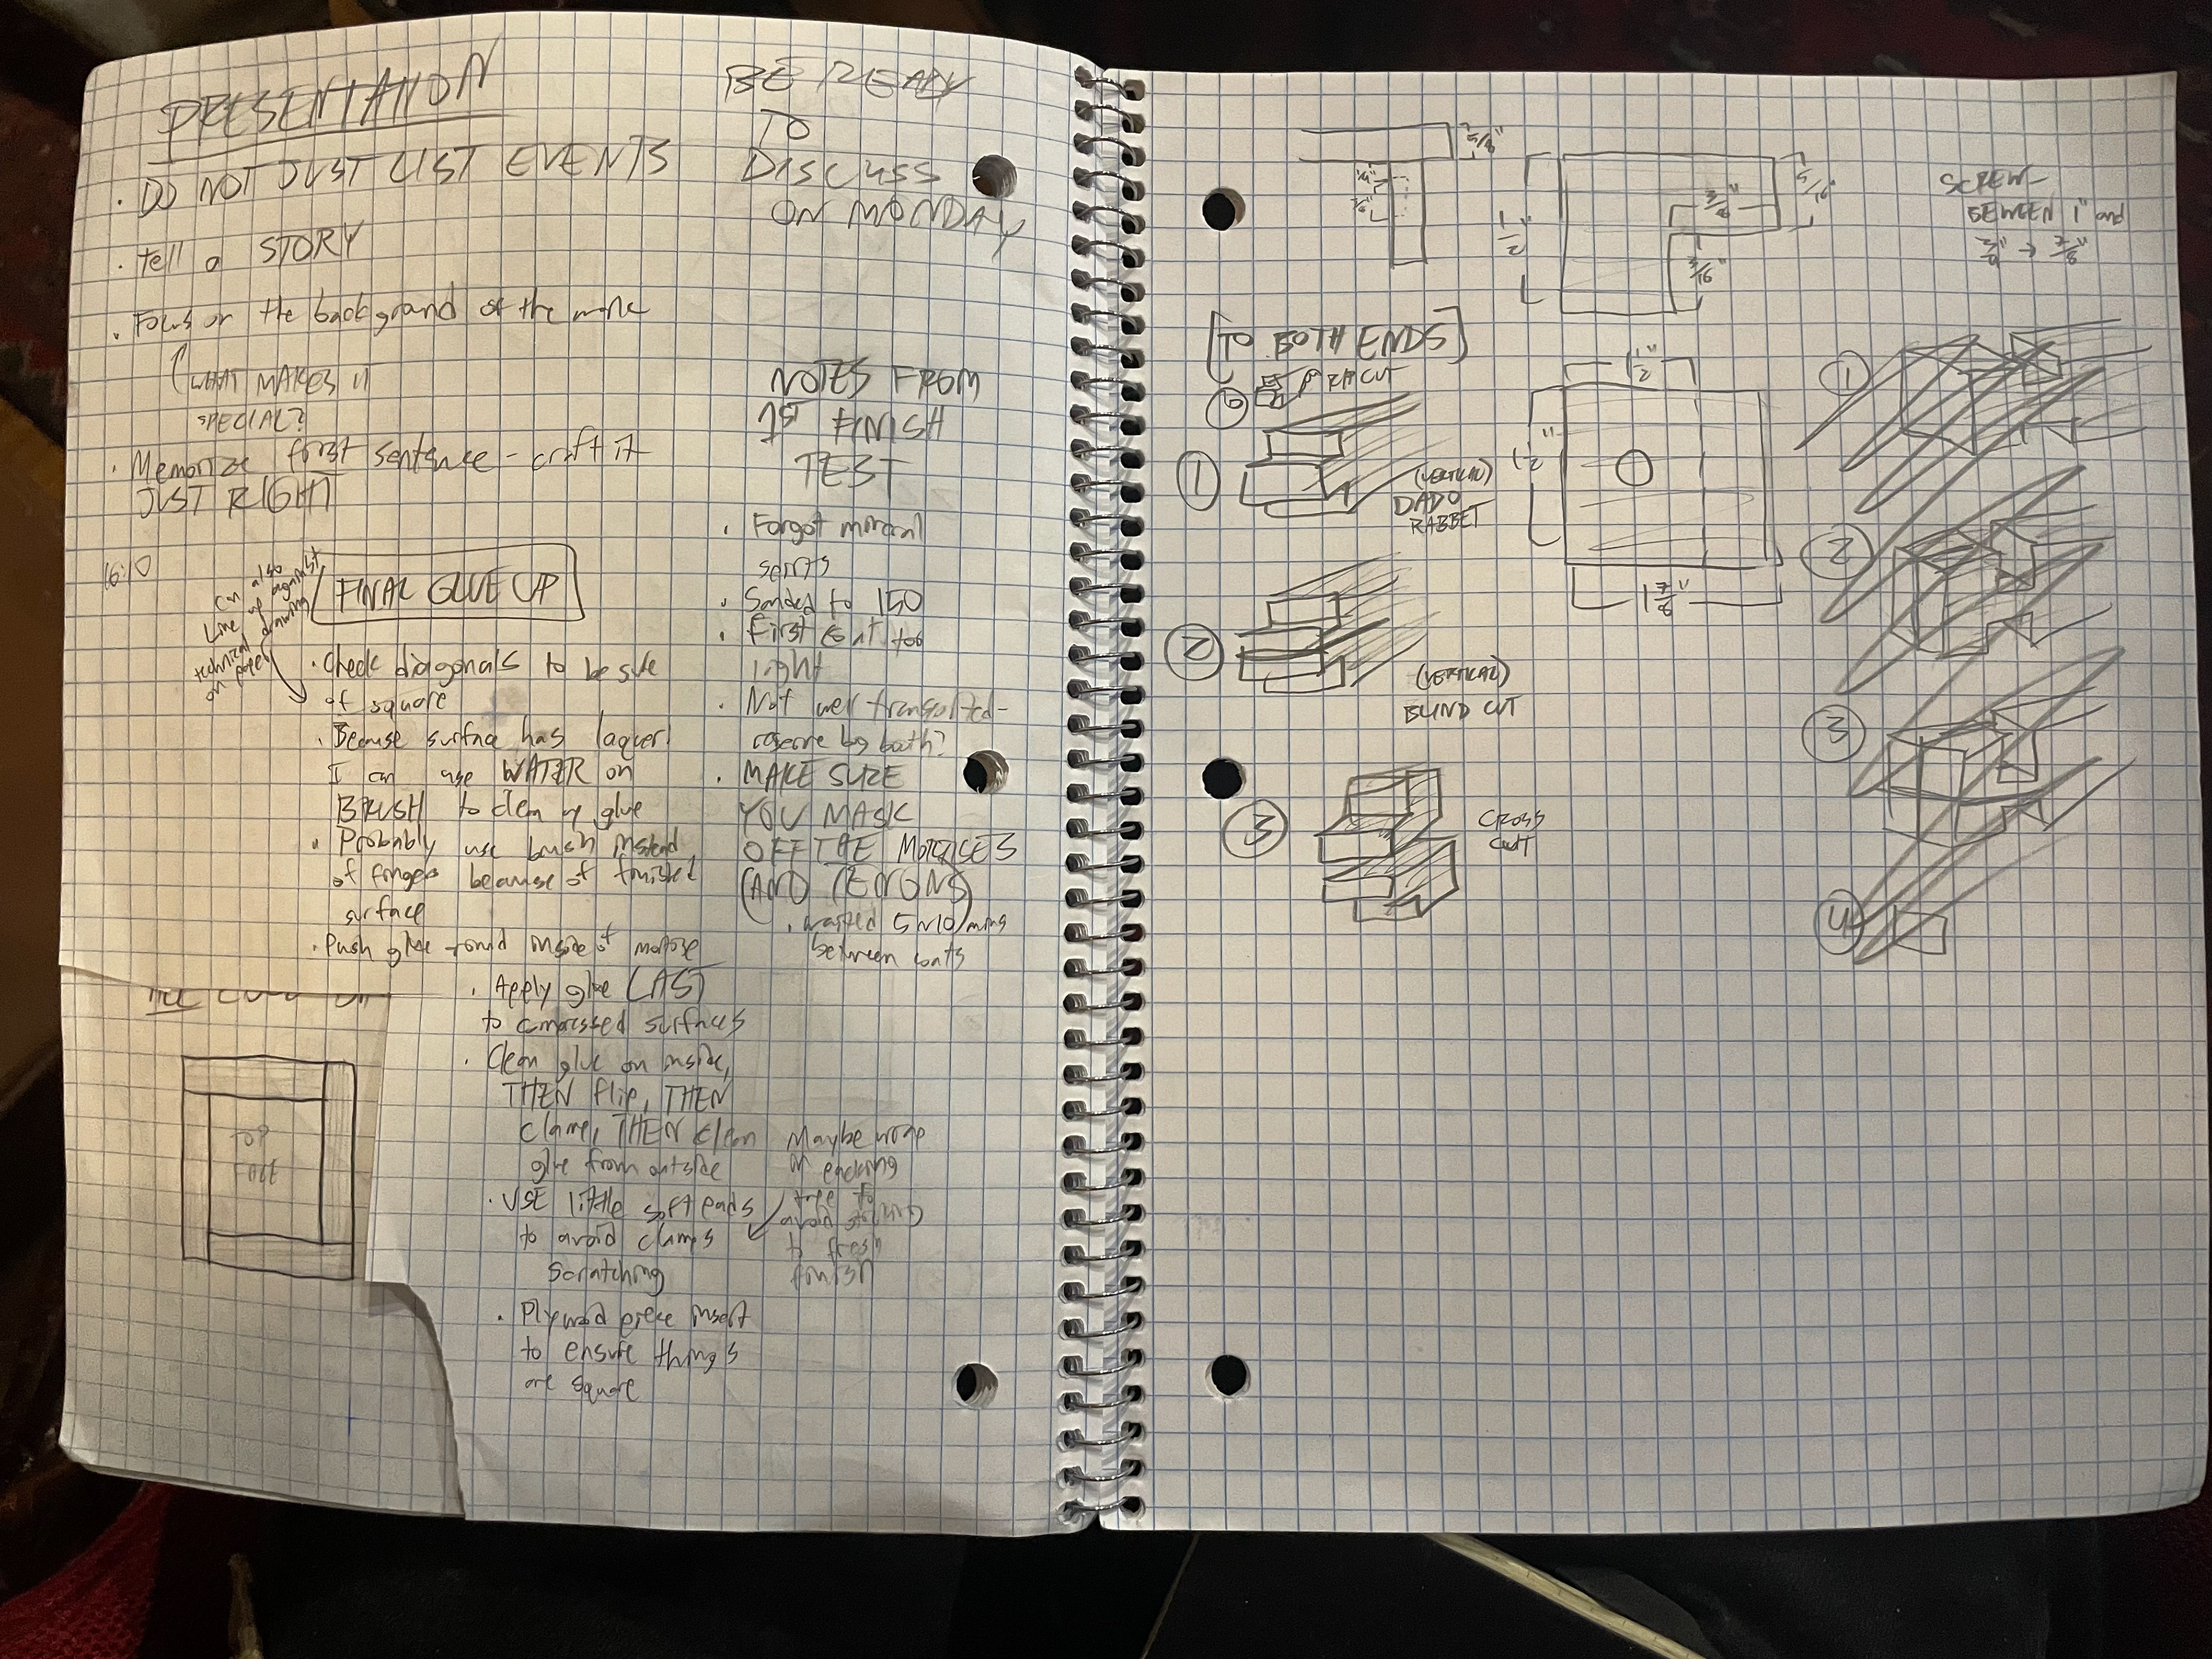 PRESENTATION
· DO NOT JUST LIST EVENTS
· tell a STORY
· Focus on the background of the work
(WHAT MAKES IT
SPECIAL?
· Memorize first sentence - craft it
JUST RIGHT
BE READY
TO
DISCUSS
ON MONDAY
16:10
FINAL GLUE UP
Can also
Line up against
technical drawing
on paper
· Check diagonals to be sure
of square
· Because surface has laquer
I can use WATER on
BRUSH to clean up glue
· Probably use brush instead
of fingers because of finished
surface
· Push glue round inside of mortise
· Apply glue LAST
to compressed surfaces
· Clean glue on inside,
THEN flip, THEN
clamp, THEN clean
glue from outside
· USE little soft pads
to avoid clamps
scratching
· Plywood piece insert
to ensure things
are square
Maybe wrap
in packing
tape to
avoid sticking
to fresh
finish
NOTES FROM
1ST FINISH
TEST
· Forgot mineral
spirits
· Sanded to 150
· First coat too
light
· Not well transported-
reserve big booth?
· MAKE SURE
YOU MASK
OFF THE MORTISES
(AND TENONS)
· waited 5~10 mins
between coats
TOP
5/8"
1/4"
1/2"
3/16"
5/16"
3/16"
SCREW-
BEWEEN 1" and
3/4" → 7/8"
[TO BOTH ENDS]
RIP CUT
1
(VERTICAL)
DADO
RABBET
2
(VERTICAL)
BLIND CUT
3
CROSS
CUT
1 1/2"
1 1/2"
1 7/8"
1
2
3
4